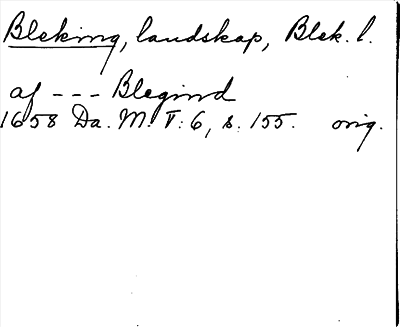 Bleking, landskap, Blek. l.
af --- Blegind
1658 Da. M. T: 6, s. 155. orig.